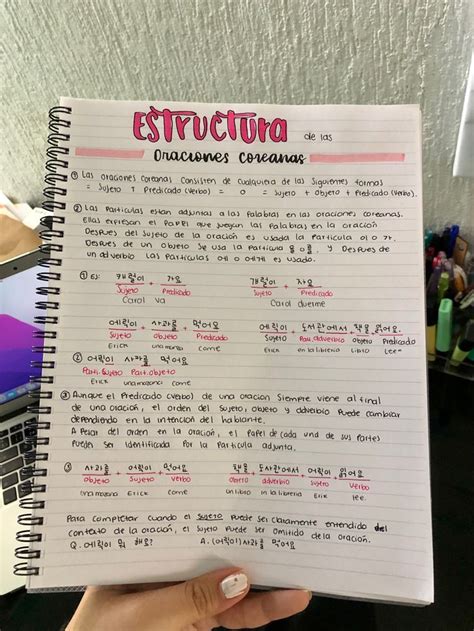 Estructura de las
Oraciones coreanas
① Las oraciones coreanas Consisten de cualquiera de las Siguientes formas
= Sujeto + Predicado (Verbo) = o = Sujeto + Objeto + Predicado (Verbo).
② Las Partículas estan adjuntas a las Palabras en las oraciones coreanas.
Ellas expresan el Papel que juegan las Palabras en la oración
Después del sujeto de la oración es usada la Partícula 이 o 가.
Después de un objeto se usa la Partícula 을 o 를, y Después de
un adverbio las Partículas 에 o 에서 es usada.
① Ej: 캐럴이 + 가요 캐럴이 + 자요
Sujeto Predicado Sujeto Predicado
Carol va Carol duerme
에릭이 + 사과를 + 먹어요 에릭이 + 도서관에서 + 책을 읽어요.
Sujeto Objeto Predicado Sujeto adverbio Objeto Predicado
Erick una manzana come Erick en la libreria libro lee
② 에릭이 사과를 먹어요
Parti. Sujeto Part. objeto
Erick una manzana come
③ Aunque el Predicado (verbo) de una oracion Siempre viene al final
de una oración, el orden del sujeto, objeto y adverbio Puede cambiar
dependiendo en la intencion del hablante.
A pesar del orden en la oración, el Papel de cada una de sus partes
Puede ser Identificada Por la Particula adjunta.
③ 사과를 + 에릭이 + 먹어요 책을 + 도서관에서 + 에릭이 + 읽어요
objeto Sujeto Verbo adverbio sujeto Verbo
Una manzana Erick come un libro en la libreria Erick lee.
Para completar cuando el sujeto Puede ser claramente entendido del
contexto de la oración, el sujeto Puede ser omitido de la oración.
Q. 에릭이 뭐 해요? A. (에릭이) 사과를 먹어요